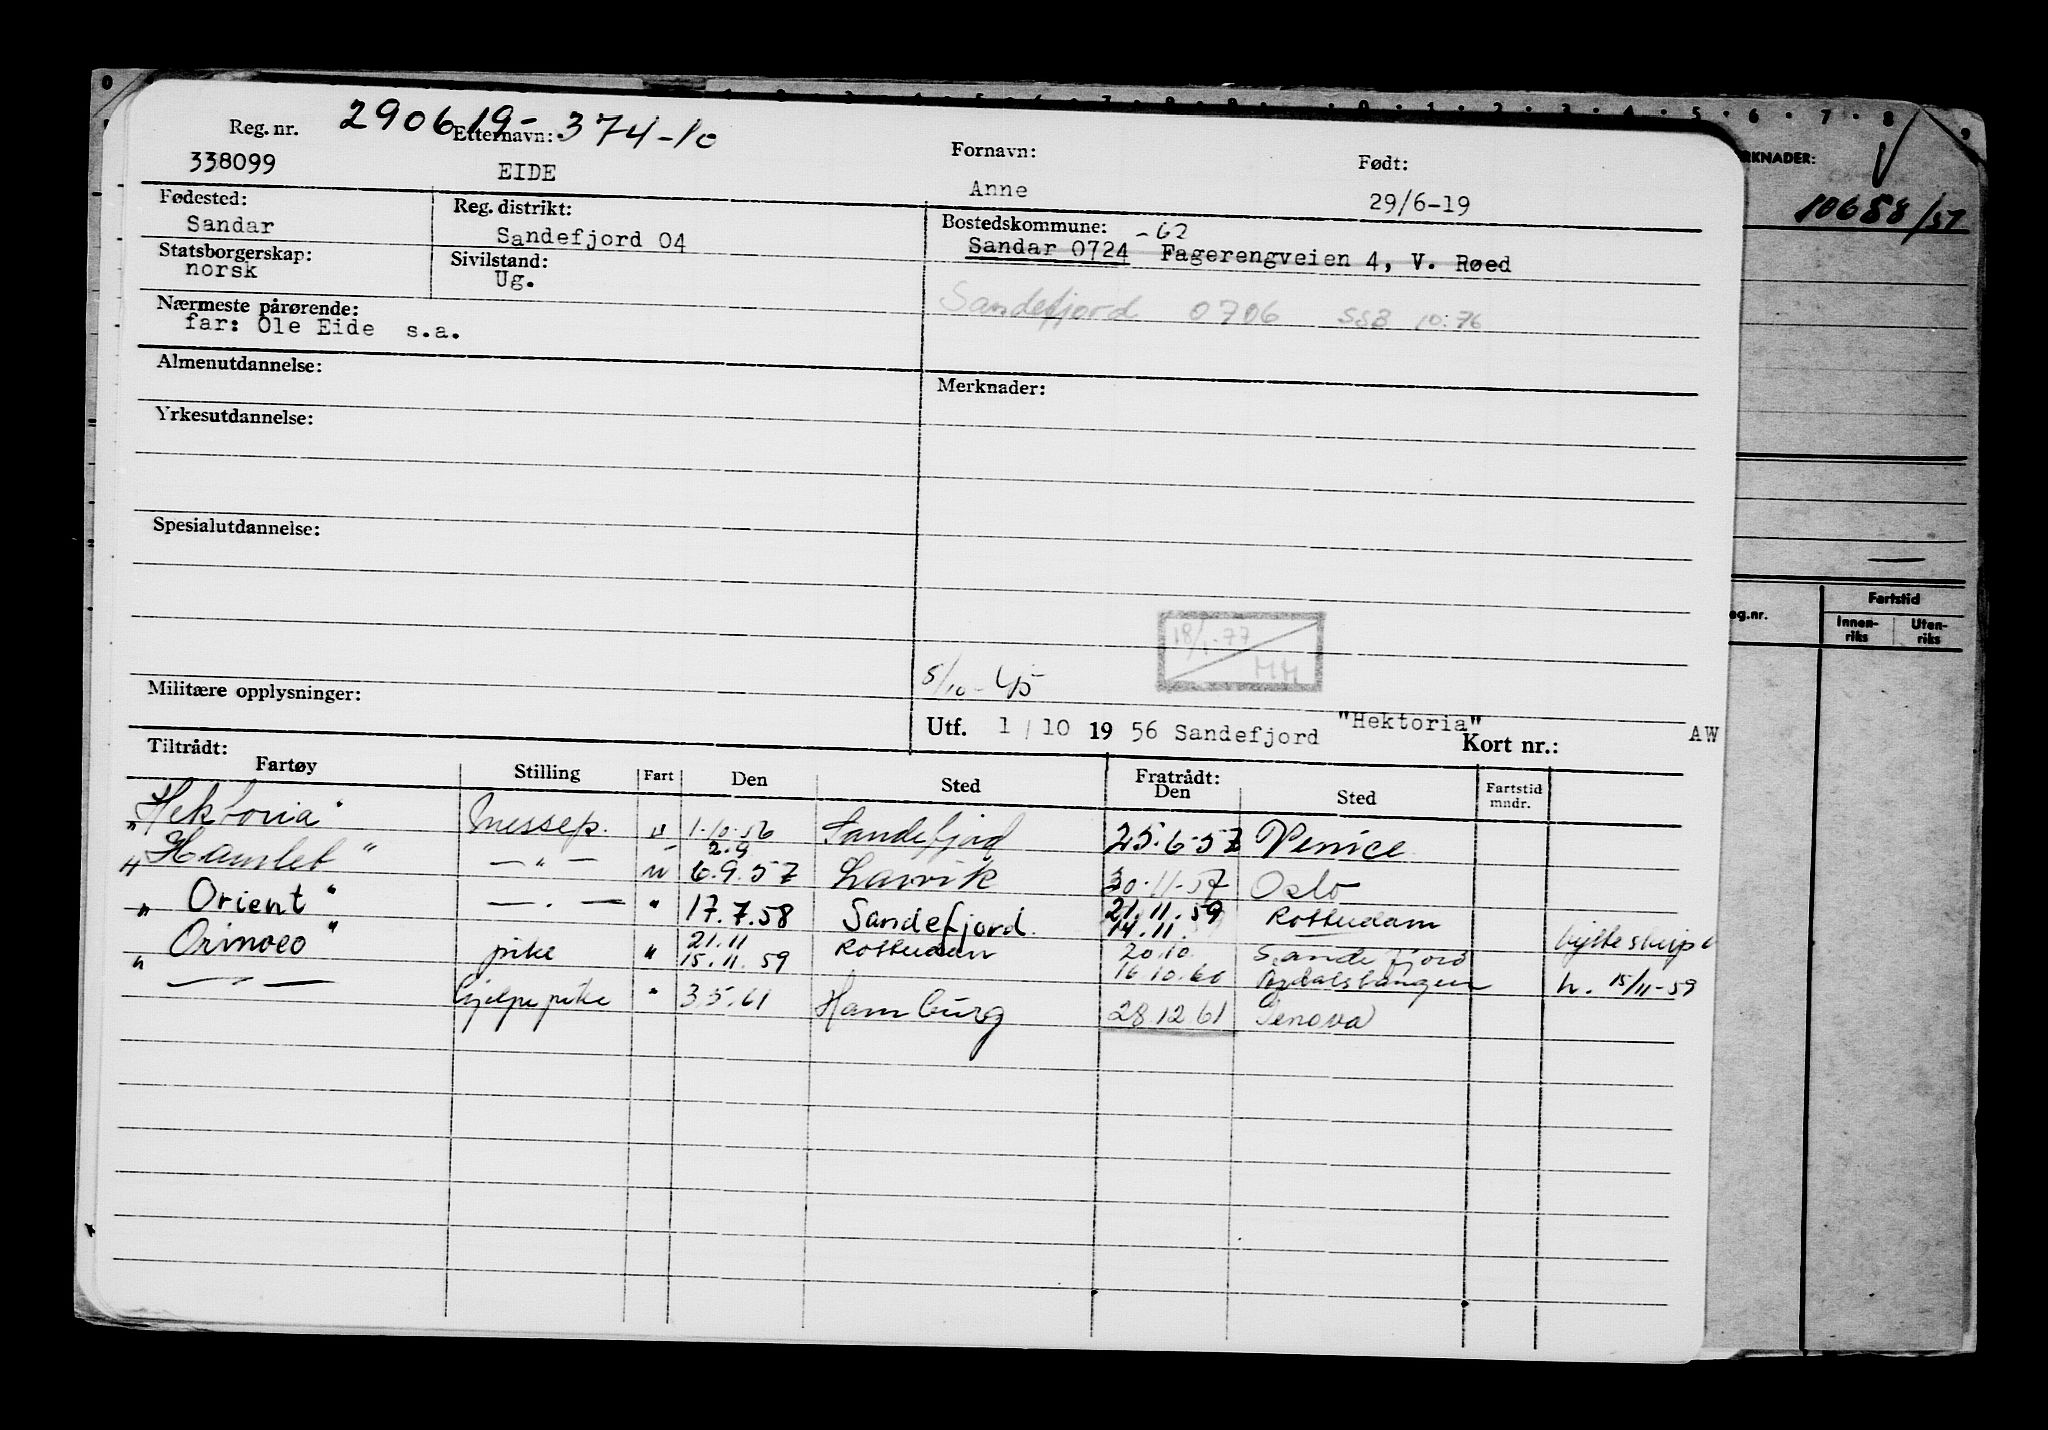 290619-374-10
Reg. nr. Etternavn: Fornavn: Født:
338099 EIDE Anne 29/6-19
Fødested: Reg. distrikt: Bostedskommune:
Sandar Sandefjord 04 Sandar 0724 -62 Fagerengveien 4, V. Røed
Statsborgerskap: Sivilstand:
norsk Ug.
Sandefjord 0706 SSB 10.76
Nærmeste pårørende:
far: Ole Eide s.a.
Almenutdannelse: Merknader:
Yrkesutdannelse:
Spesialutdannelse:
18/1-77 MM
5/10-45
Militære opplysninger:
Utf. 1/10 1956 Sandefjord "Hektoria" Kort nr.: AW
Tiltrådt: Fratrådt:
Fartøy Stilling Fart Den Sted Den Sted Fartstid mndr.
"Hektoria" Messep. u 1.10.56 Sandefjord 25.6.57 Venice
2.9
"Hamlet" — " — u 6.9.57 Larvik 30.11.57 Oslo
" Orient " — . — " 17.7.58 Sandefjord. 21.11.59 Rotterdam
14.11.
21.11 20.10.
" Orinoco " pike " 15.11.59 Rotterdam 16.10.60 Sandefjord
h. 15/11-59
" — " — hjelpepike " 3.5.61 Hamburg 28.12.61 Genova
MERKNADER:
10658/57
eg.nr. Fartstid
Innen-
riks Uten-
riks